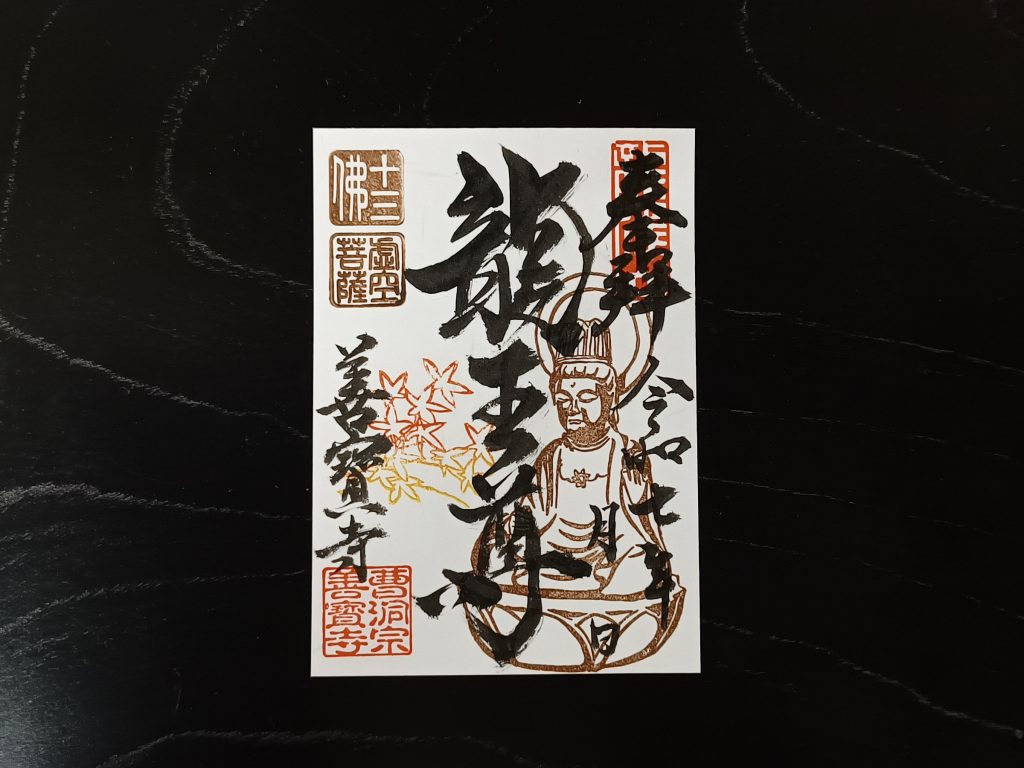 奉拝
令和七年
月
日
龍王尊
十三
佛
虚空
菩薩
善寳寺
曹洞宗
善寳寺